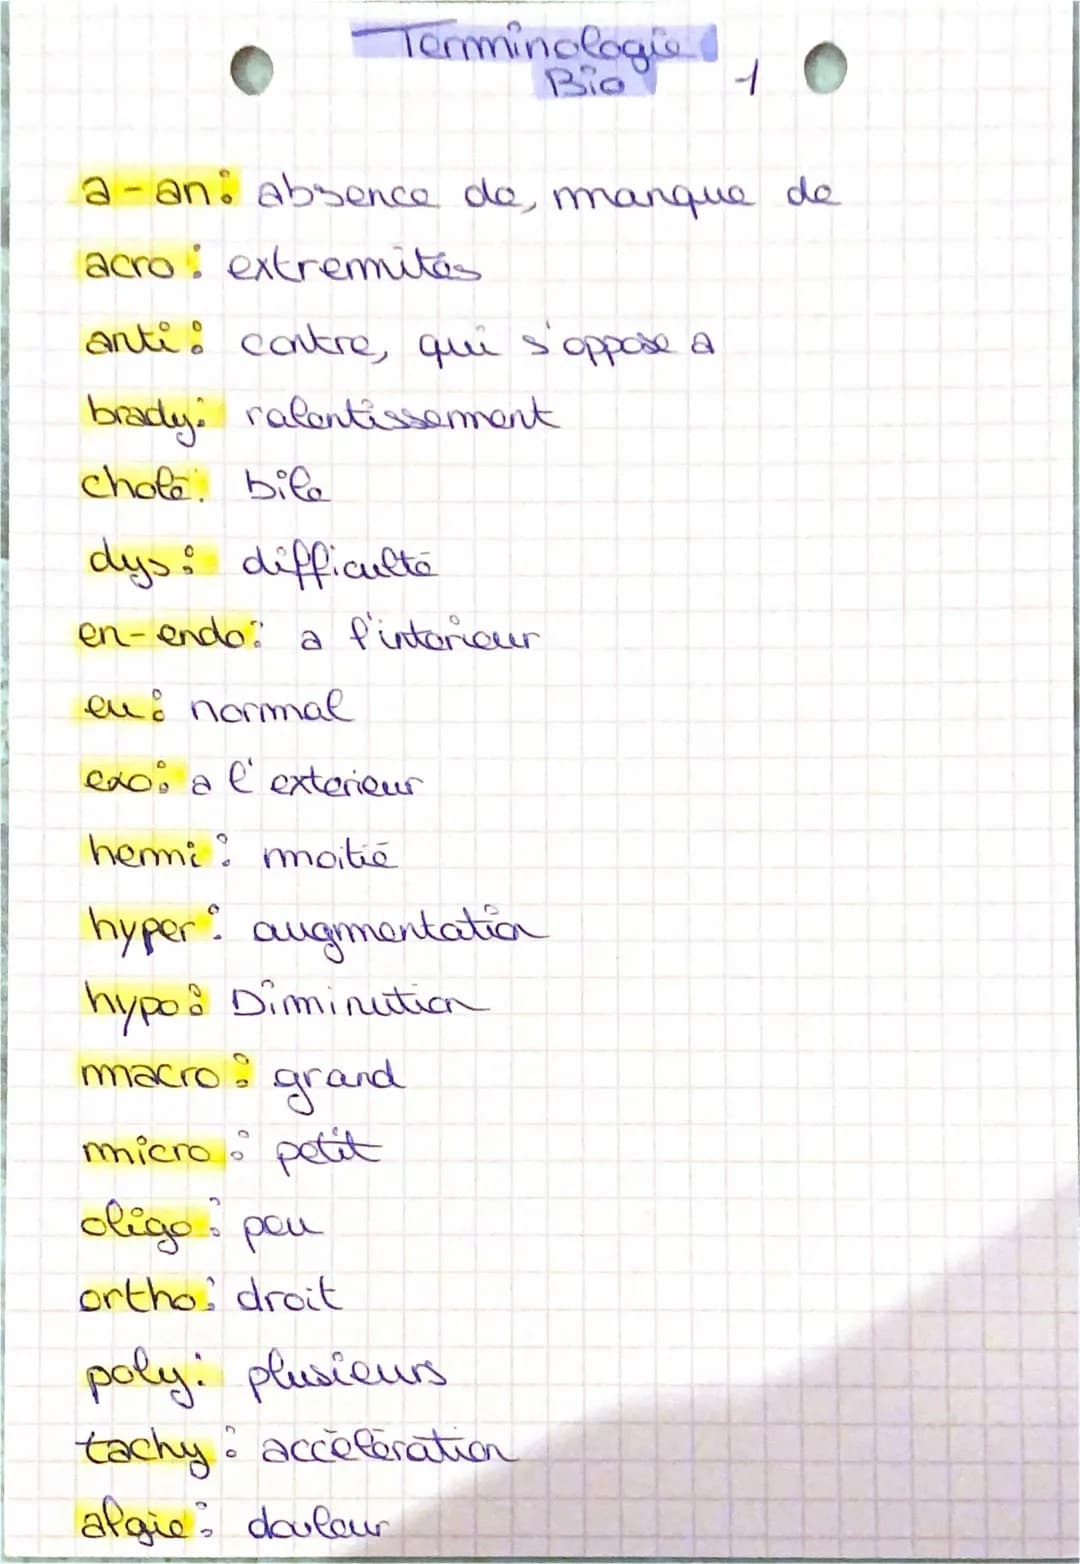 Terminologie
Bio
1
a-an: absence de, manque de
acro: extremités
anti: contre, qui s'oppose a
brady: ralentissement
cholé: bile
dys: difficulté
en-endo: a l'interieur
eu: normal
exo: a l'exterieur
hemi: moitié
hyper: augmentation
hypo: Diminution
macro: grand
micro: petit
oligo: peu
ortho: droit
poly: plusieurs
tachy: accélération
algie: douleur